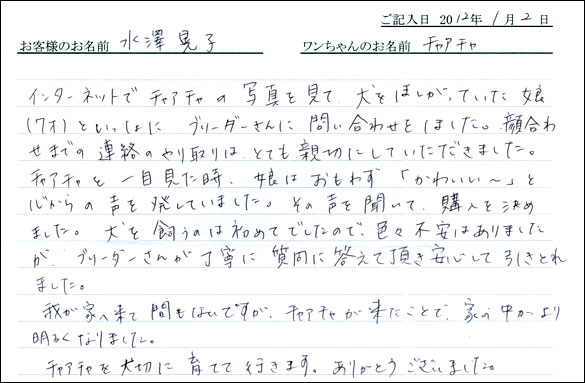 ご記入日 2012年 1月 2日
お客様のお名前 水澤晃子 ワンちゃんのお名前 チャアチャ
インターネットで チャアチャの 写真を見て、犬をほしがっていた娘
(7才)といっしょに ブリーダーさんに 問い合わせをしました。顔合わ
せまでの 連絡のやり取りは、とても親切にしていただきました。
チャアチャを 一目見た時、娘は おもわず 「かわいい〜」と
心からの声を発していました。その声を聞いて、購入を決め
ました。犬を飼うのは初めてでしたので、色々不安はありました
が、ブリーダーさんが丁寧に 質問に答えて頂き安心して引きとれ
ました。
我が家へ来て間もないですが、チャアチャが来たことで、家の中がより
明るくなりました。
チャアチャを大切に育てて行きます。ありがとうございました。